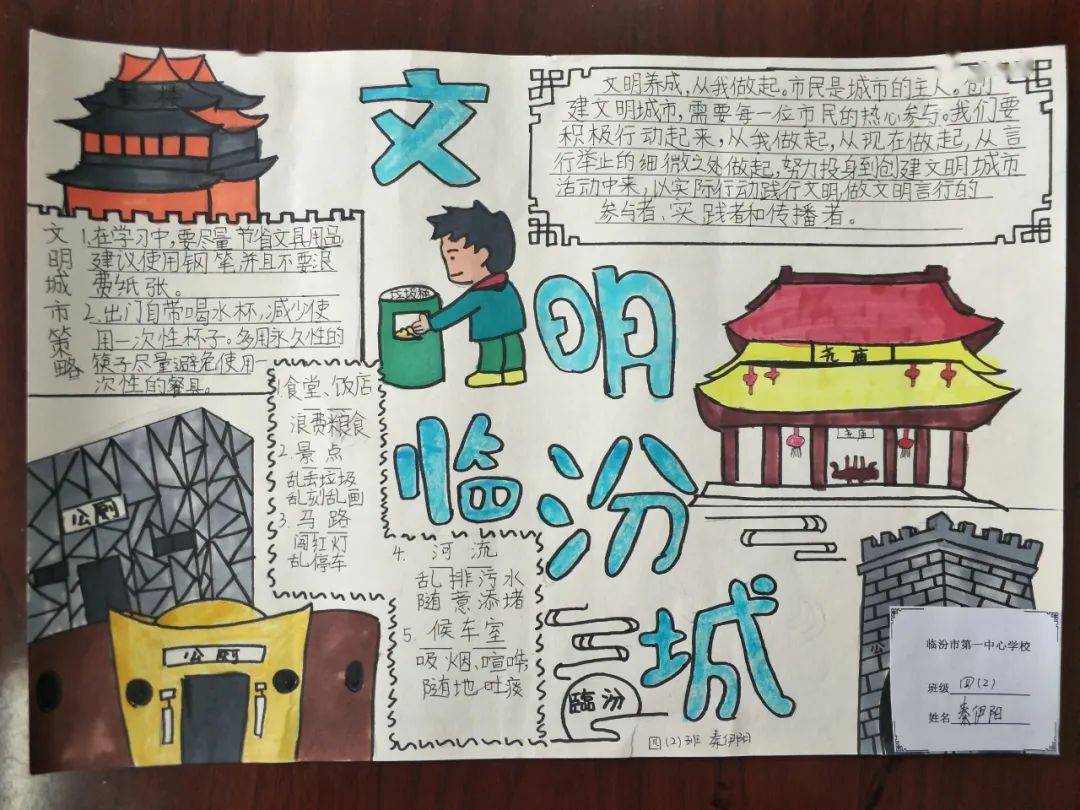 文明临汾城
文明养成,从我做起。市民是城市的主人。创
建文明城市,需要每一位市民的热心参与。我们要
积极行动起来,从我做起,从现在做起,从言
行举止的细微之处做起,努力投身到创建文明城市
活动中来,以实际行动践行文明,做文明言行的
参与者、实践者和传播者。
文明城市策略
1.在学习中,要尽量节省文具用品,
建议使用钢笔,并且不要浪
费纸张。
2.出门自带喝水杯,减少使
用一次性杯子。多用永久性的
筷子尽量避免使用一
次性的餐具。
垃圾桶
尧庙
尧庙
食堂、饭店
浪费粮食
2.景点
乱丢垃圾
乱刻乱画
3.马路
闯红灯
乱停车
4. 河流
乱排污水
随意添堵
5.候车室
吸烟、喧哗,
随地吐痰
公厕
公厕
臨汾
四(2)班 秦伊阳
临汾市第一中心学校
班级 四(2)
姓名 秦伊阳